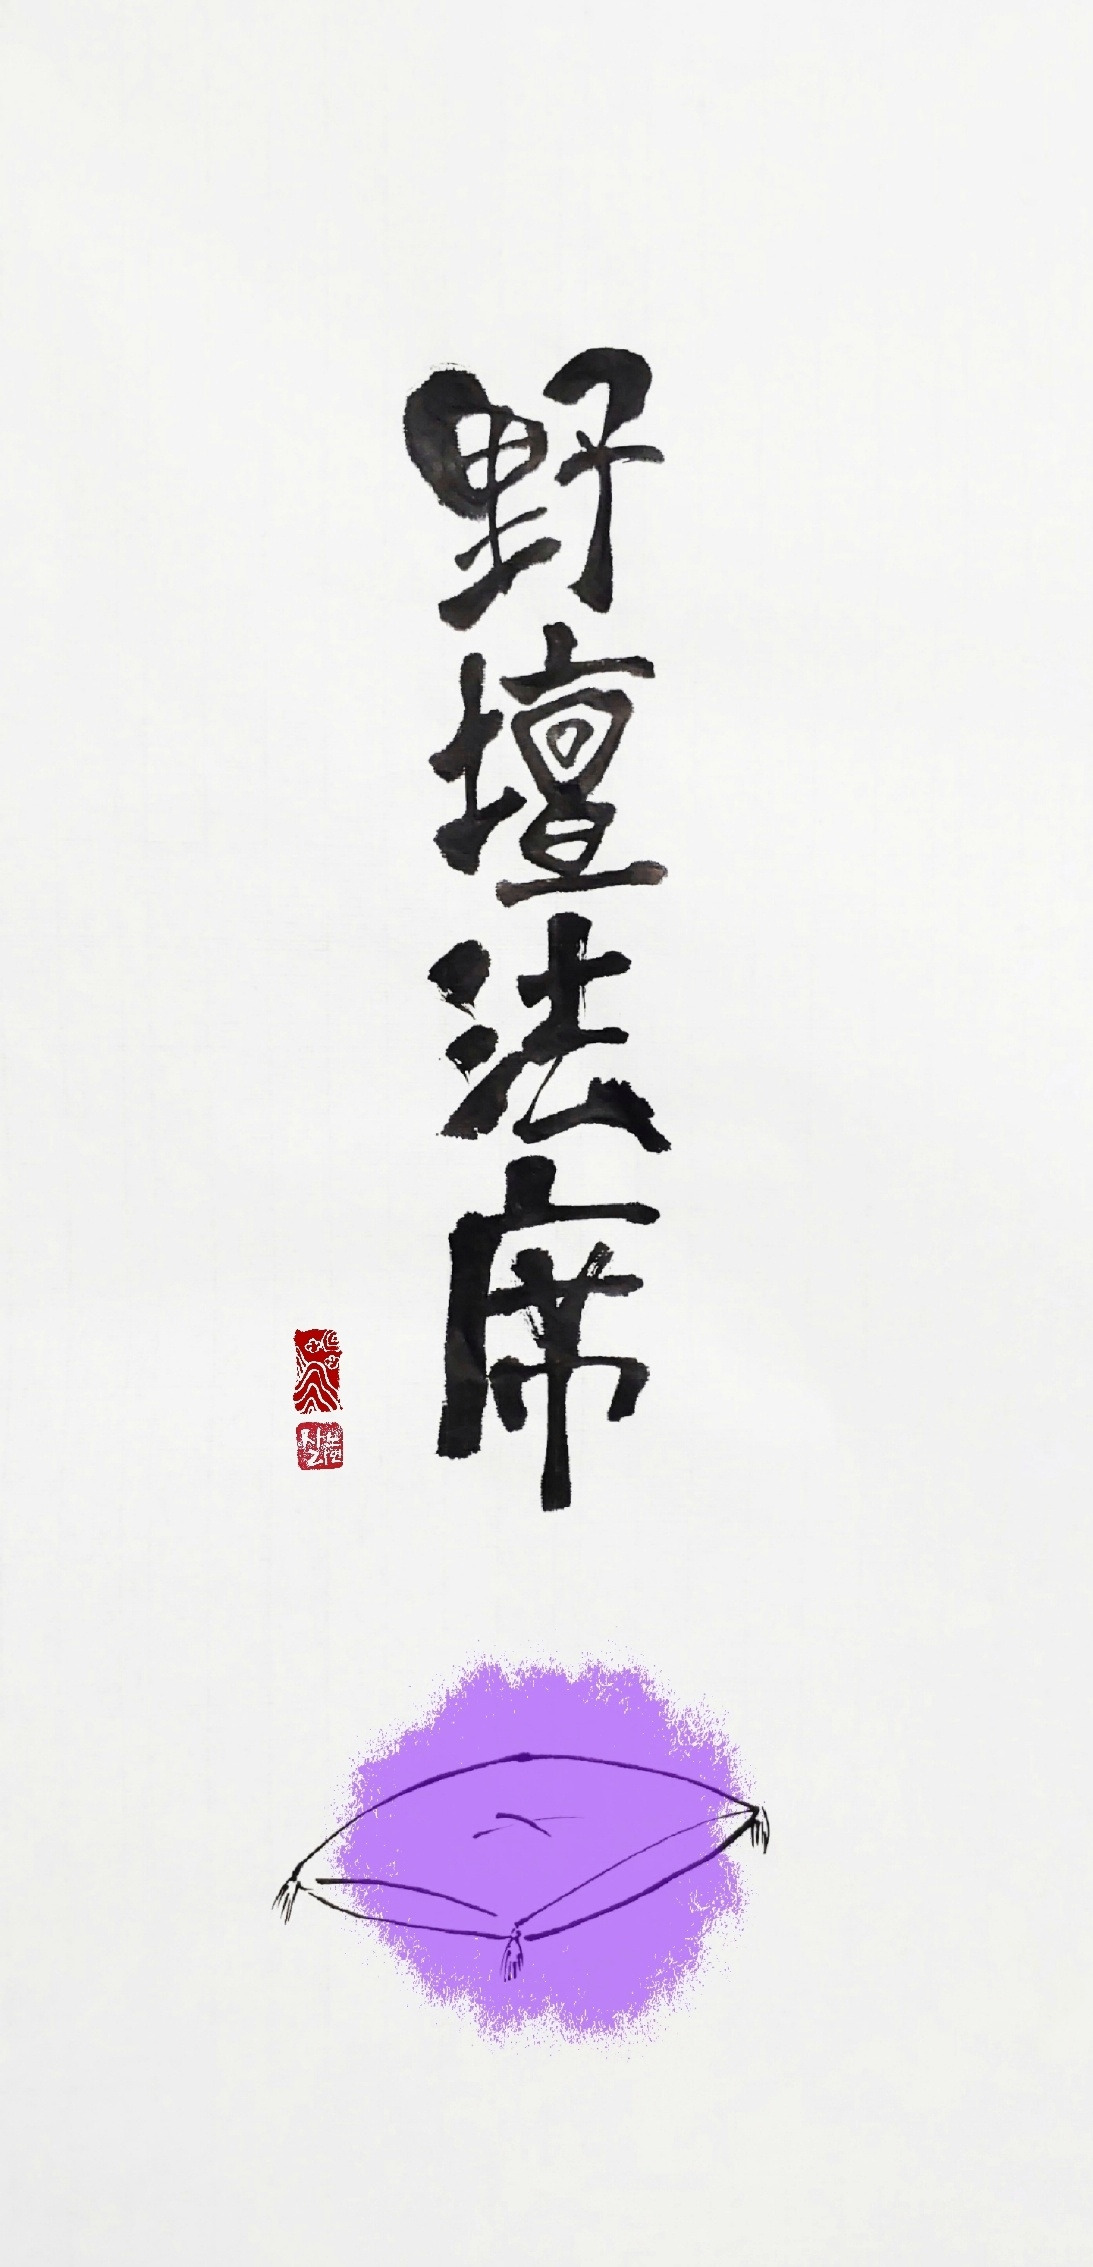 野壇法席